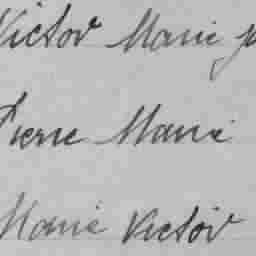 Victor Marie
Pierre Marie
Marie Victor